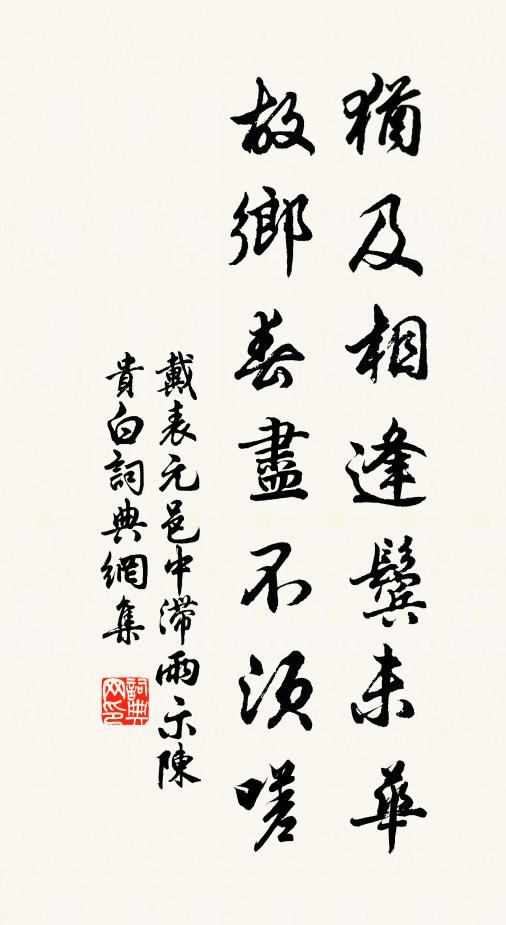 猶及相逢鬢未華
故鄉春盡不須嗟
戴表元邑中滯雨示陳
貴白詞典網集
詞典
网印